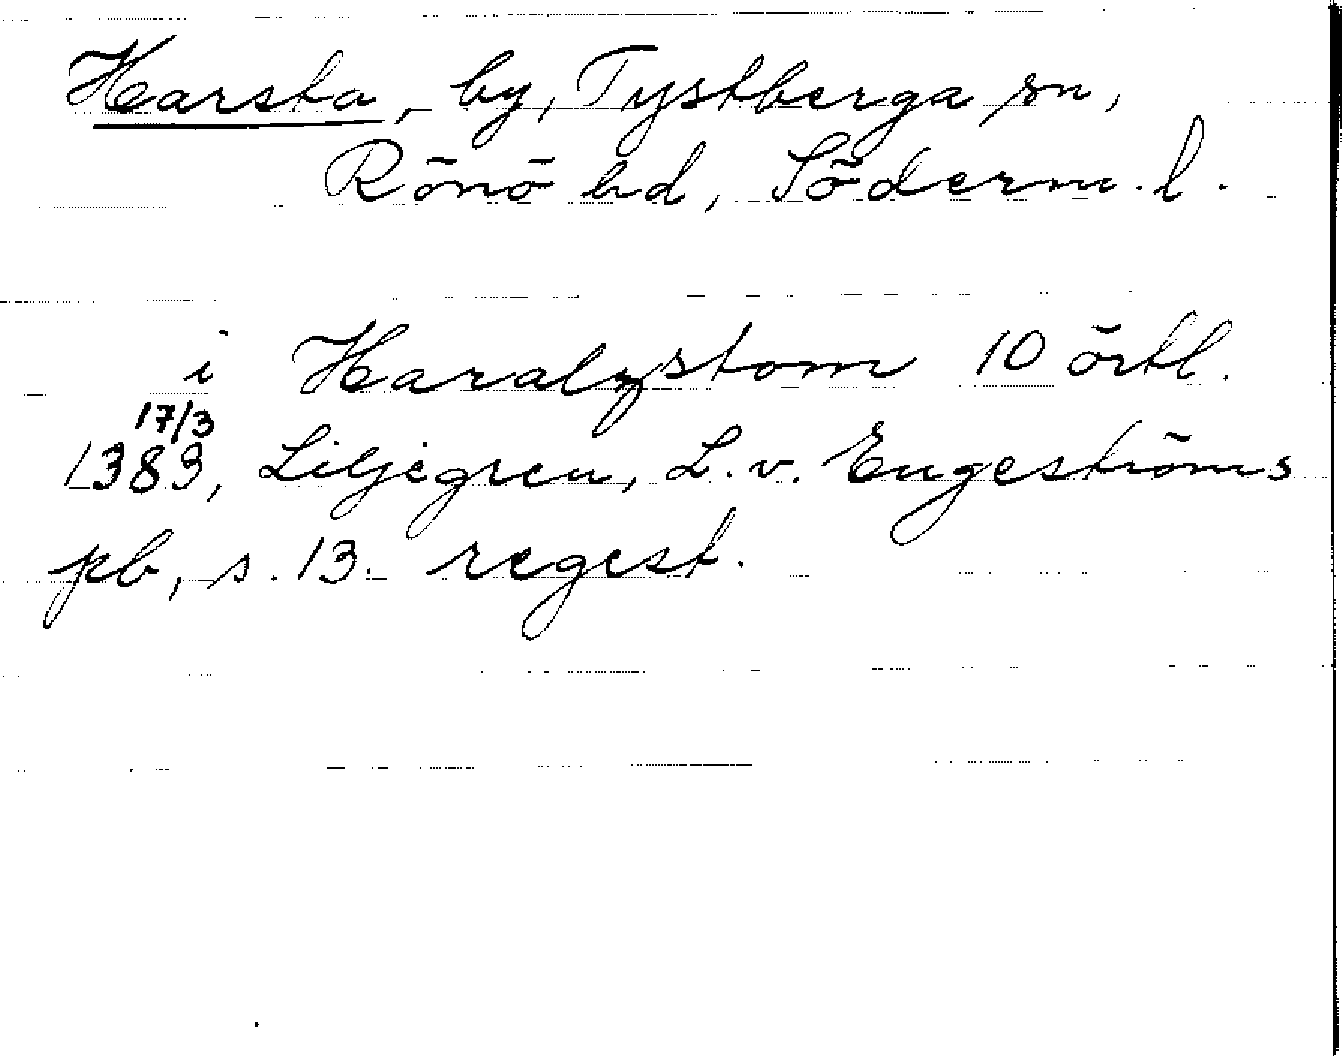 Harsta, by, Tystberga sn,
Rönö hd, Söderm. l.
i Haralzstom 10 örtl.
17/3
1383, Liljegren, L. v. Engeströms
pb, s. 13. regest.